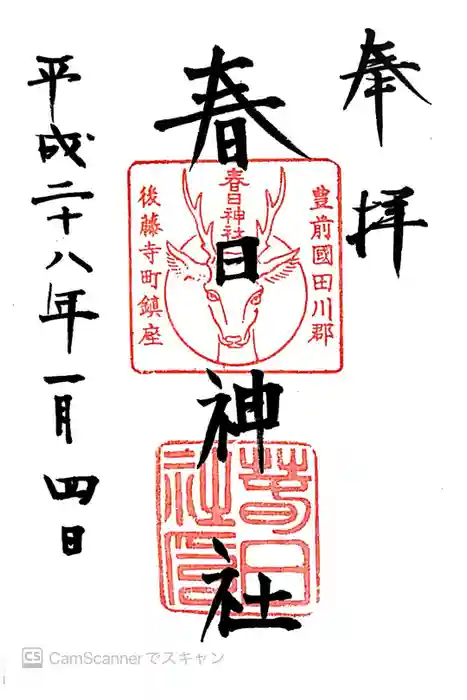 奉拝
春日神社
豊前國田川郡
春日神社
後藤寺町鎮座
春日社印
平成二十八年一月四日
CS CamScannerでスキャン